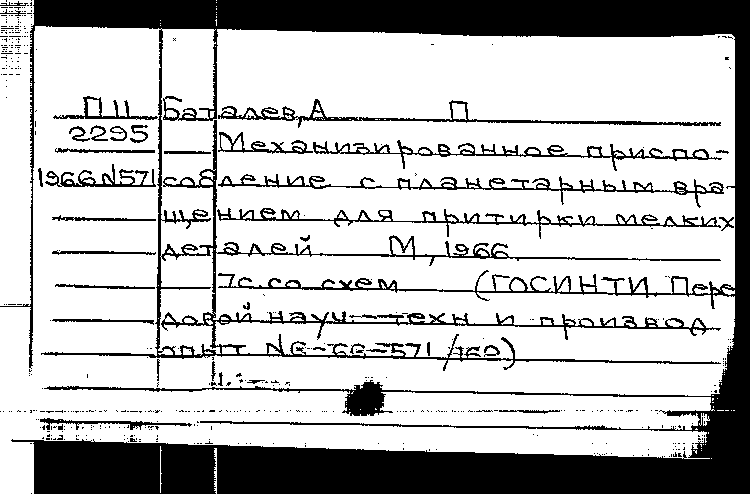 П11 Баталев, А П
2295 Механизированное приспо-
1966N571 собление с планетарным вра-
щением для притирки мелких
деталей М, 1966.
7с.со схем (ГОСИНТИ. Пере
довой науч-техн и производ
опыт N6-66-571/160)